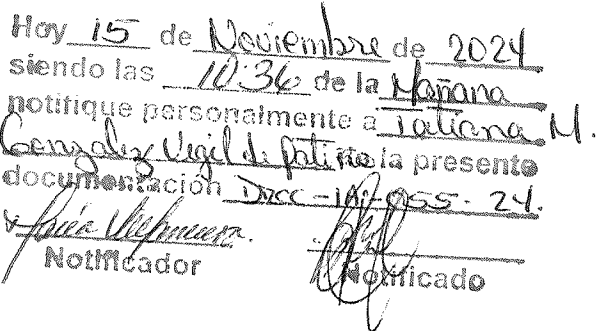 Hoy 15 de Noviembre de 2024
siendo las 10:36 de la Mañana
notifique personalmente a Tatiana M.
González Vigil de Patiño la presente
documentación DRCC-IA-055-24.
Notificador Notificado